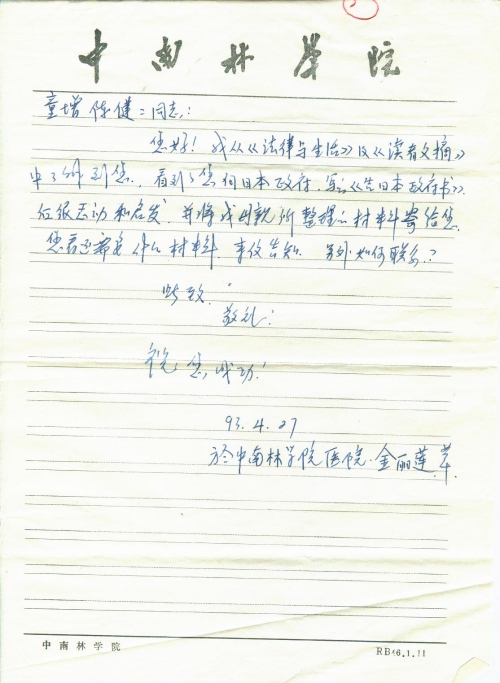 中南林学院
童增 陈健 二同志:
您好! 我从《法律与生活》及《读者文摘》
中了解到您, 看到了您向日本政府, 写的《告日本政府书》,
后很感动和启发, 并将我母亲所整理的材料寄给您,
您看还需要什么材料, 来信告知. 另外如何联系?
此致
敬礼!
祝您成功!
93.4.27
於中南林学院医院·金丽莲 草
中南林学院
RB46.1.11